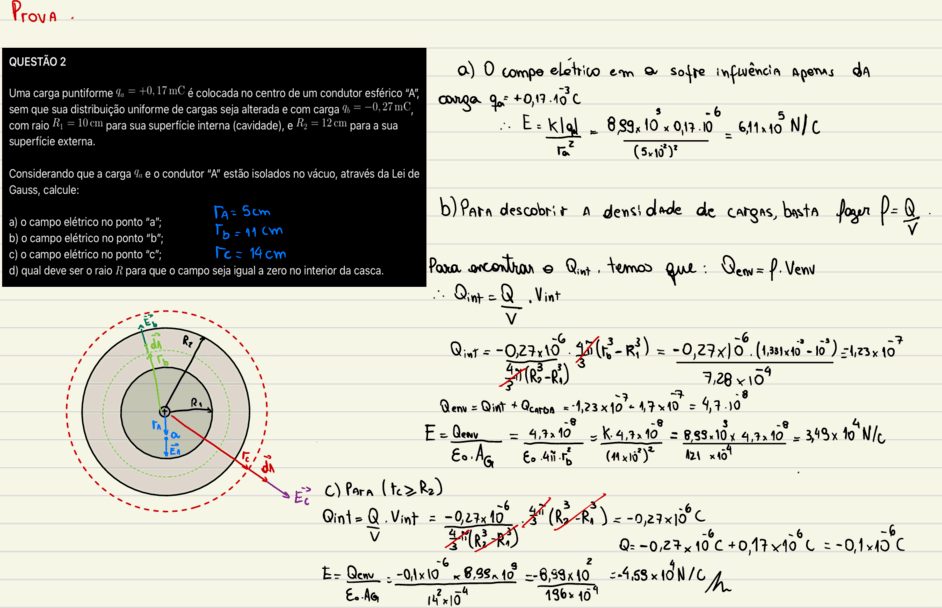 Prova.
QUESTÃO 2
Uma carga puntiforme qₐ = +0,17 mC é colocada no centro de um condutor esférico “A”,
sem que sua distribuição uniforme de cargas seja alterada e com carga q_b = −0,27 mC,
com raio R₁ = 10 cm para sua superfície interna (cavidade), e R₂ = 12 cm para a sua
superfície externa.
Considerando que a carga qₐ e o condutor “A” estão isolados no vácuo, através da Lei de
Gauss, calcule:
a) o campo elétrico no ponto “a”;
b) o campo elétrico no ponto “b”;
c) o campo elétrico no ponto “c”;
d) qual deve ser o raio R para que o campo seja igual a zero no interior da casca.
r_A = 5 cm
r_b = 11 cm
r_c = 14 cm
E_b
dA
r_b
R₂
R₁
r_A
a
E_A
r_c
dA
E_c
a) O campo elétrico em a sofre influência apenas da
carga qₐ = +0,17·10⁻³ C
∴ E = k|q|/rₐ² = 8,99×10⁹ × 0,17·10⁻⁶/(5×10⁻²)² = 6,11×10⁵ N/C
b) Para descobrir a densidade de cargas, basta fazer ρ = Q/V.
Para encontrar o Qint, temos que: Qenv = ρ·Venv
∴ Qint = Q/V · Vint
Qint = −0,27×10⁻⁶/(4/3 π(R₂³−R₁³)) · 4/3 π(r_b³−R₁³) = −0,27×10⁻⁶·(1,331×10⁻³−10⁻³)/7,28×10⁻⁴ = −1,23×10⁻⁷
Qenv = Qint + Qcarga = −1,23×10⁻⁷ + 1,7×10⁻⁷ = 4,7·10⁻⁸
E = Qenv/ε₀·A_G = 4,7×10⁻⁸/ε₀·4π·r_b² = K·4,7×10⁻⁸/(11×10⁻²)² = 8,99×10⁹ × 4,7×10⁻⁸/121×10⁻⁴ = 3,49×10⁴ N/C
c) Para (r_c ≥ R₂)
Qint = Q/V · Vint = −0,27×10⁻⁶/(4/3 π(R₂³−R₁³)) · 4/3 π(R₂³−R₁³) = −0,27×10⁻⁶ C
Q = −0,27×10⁻⁶ C + 0,17×10⁻⁶ C = −0,1×10⁻⁶ C
E = Qenv/ε₀·A_G = −0,1×10⁻⁶ × 8,99×10⁹/14²×10⁻⁴ = −8,99×10²/196×10⁻⁴ = −4,59×10⁴ N/C